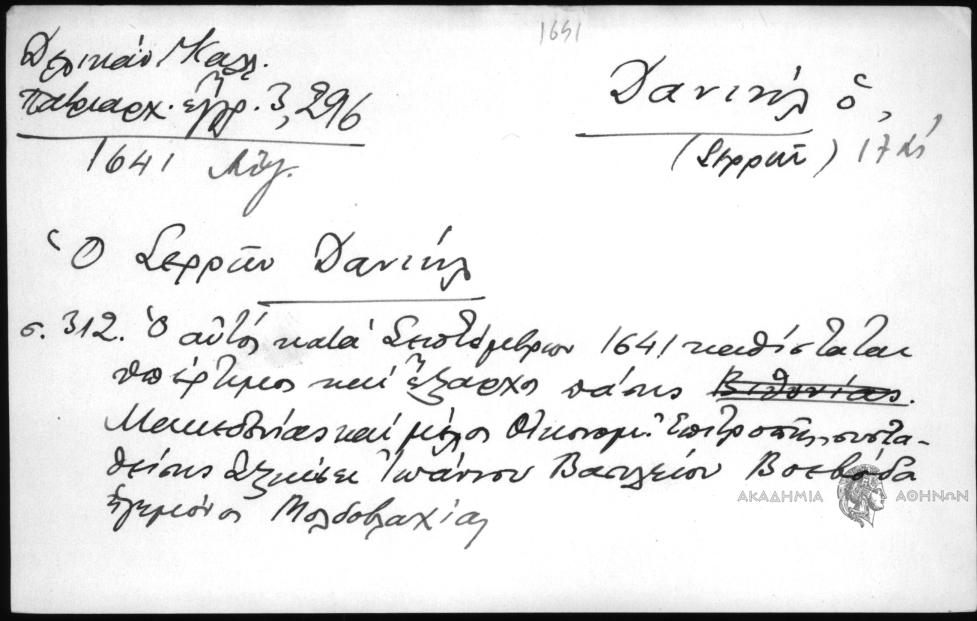 1641
Δελικάν Καλλ.
Πατριαρχ. ἔγγρ. 3, 296
1641 Αὔγ.
Δανιὴλ ὁ,
(Σερρῶν) 17 αἰ
Ὁ Σερρῶν Δανιήλ
σ. 312. Ὁ αὐτὸς κατὰ Σεπτέμβριον 1641 καθίσταται
ὑπέρτιμος καὶ ἔξαρχος πάσης Βιθυνίας.
Μακεδονίας καὶ μέλος Οἰκονομ. Ἐπιτροπῆς συστα-
θείσης αἰτήσει Ἰωάννου Βασιλείου Βοεβόδα
ἡγεμόνος Μολδοβλαχίας
ΑΚΑΔΗΜΙΑ ΑΘΗΝΩΝ